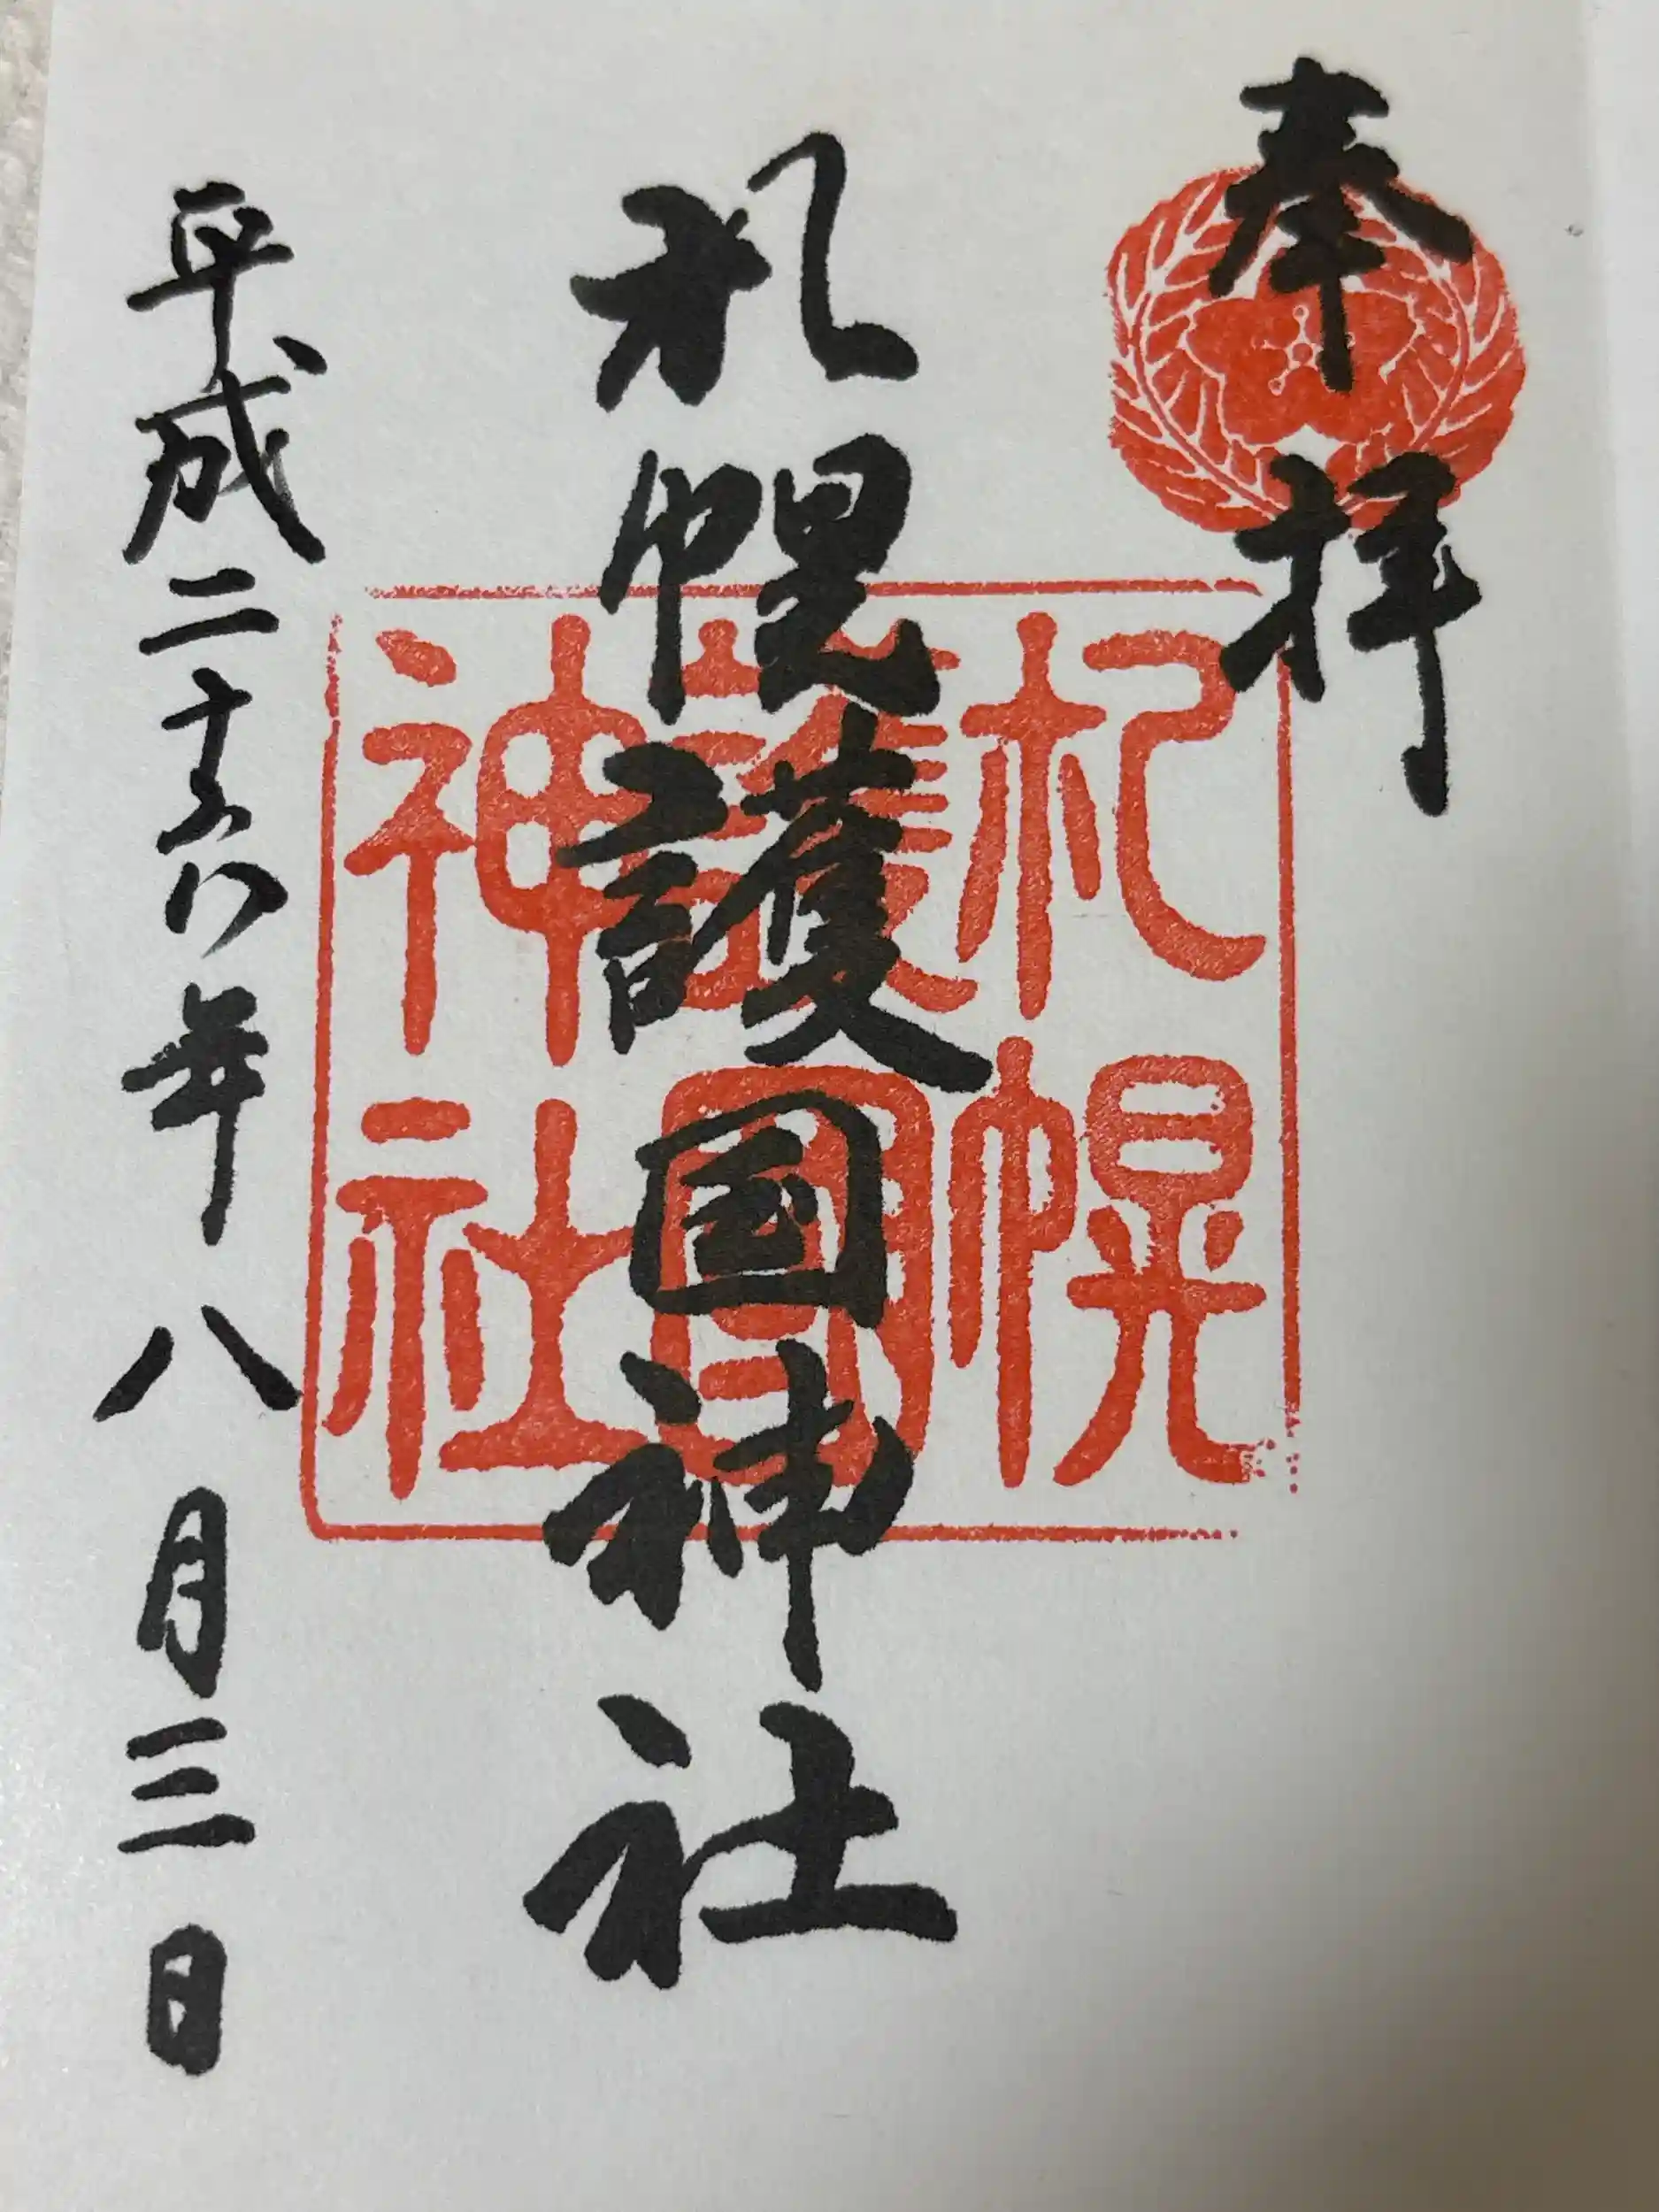 奉拝
札幌護国神社
札幌
護國
神社
平成二十六年八月三日